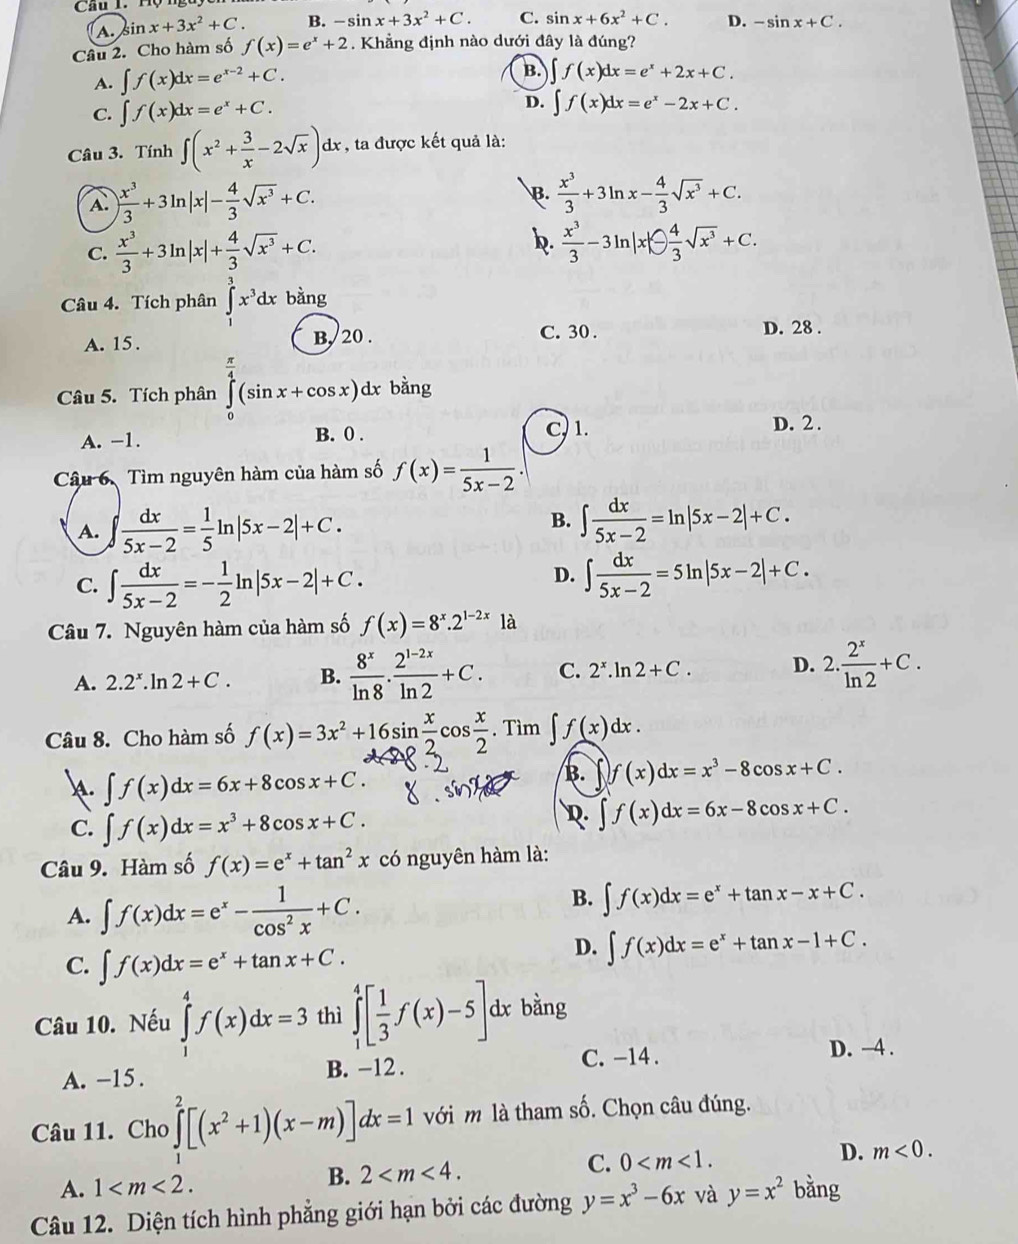 Câu 1.
A. sin x + 3x² + C. B. −sin x + 3x² + C. C. sin x + 6x² + C. D. −sin x + C.
Câu 2. Cho hàm số f(x) = eˣ + 2. Khẳng định nào dưới đây là đúng?
A. ∫f(x)dx = eˣ⁻² + C. B. ∫f(x)dx = eˣ + 2x + C.
C. ∫f(x)dx = eˣ + C. D. ∫f(x)dx = eˣ − 2x + C.
Câu 3. Tính ∫(x² + 3/x − 2√x)dx, ta được kết quả là:
A. x³/3 + 3ln|x| − 4/3 √x³ + C. B. x³/3 + 3ln x − 4/3 √x³ + C.
C. x³/3 + 3ln|x| + 4/3 √x³ + C. D. x³/3 − 3ln|x| − 4/3 √x³ + C.
Câu 4. Tích phân ∫₁³ x³dx bằng
A. 15. B. 20. C. 30. D. 28.
Câu 5. Tích phân ∫₀^(π/4) (sin x + cos x)dx bằng
A. −1. B. 0. C. 1. D. 2.
Câu 6. Tìm nguyên hàm của hàm số f(x) = 1/(5x−2).
A. ∫dx/(5x−2) = 1/5 ln|5x−2| + C. B. ∫dx/(5x−2) = ln|5x−2| + C.
C. ∫dx/(5x−2) = −1/2 ln|5x−2| + C. D. ∫dx/(5x−2) = 5ln|5x−2| + C.
Câu 7. Nguyên hàm của hàm số f(x) = 8ˣ.2¹⁻²ˣ là
A. 2.2ˣ.ln 2 + C. B. 8ˣ/ln 8 . 2¹⁻²ˣ/ln 2 + C. C. 2ˣ.ln 2 + C. D. 2. 2ˣ/ln 2 + C.
Câu 8. Cho hàm số f(x) = 3x² + 16 sin x/2 cos x/2. Tìm ∫f(x)dx.
A. ∫f(x)dx = 6x + 8cos x + C. 8 . sin B. ∫f(x)dx = x³ − 8cos x + C.
C. ∫f(x)dx = x³ + 8cos x + C. D. ∫f(x)dx = 6x − 8cos x + C.
Câu 9. Hàm số f(x) = eˣ + tan² x có nguyên hàm là:
A. ∫f(x)dx = eˣ − 1/cos² x + C. B. ∫f(x)dx = eˣ + tan x − x + C.
C. ∫f(x)dx = eˣ + tan x + C. D. ∫f(x)dx = eˣ + tan x − 1 + C.
Câu 10. Nếu ∫₁⁴ f(x)dx = 3 thì ∫₁⁴ [1/3 f(x) − 5]dx bằng
A. −15. B. −12. C. −14. D. −4.
Câu 11. Cho ∫₁² [(x² + 1)(x − m)]dx = 1 với m là tham số. Chọn câu đúng.
A. 1 < m < 2. B. 2 < m < 4. C. 0 < m < 1. D. m < 0.
Câu 12. Diện tích hình phẳng giới hạn bởi các đường y = x³ − 6x và y = x² bằng